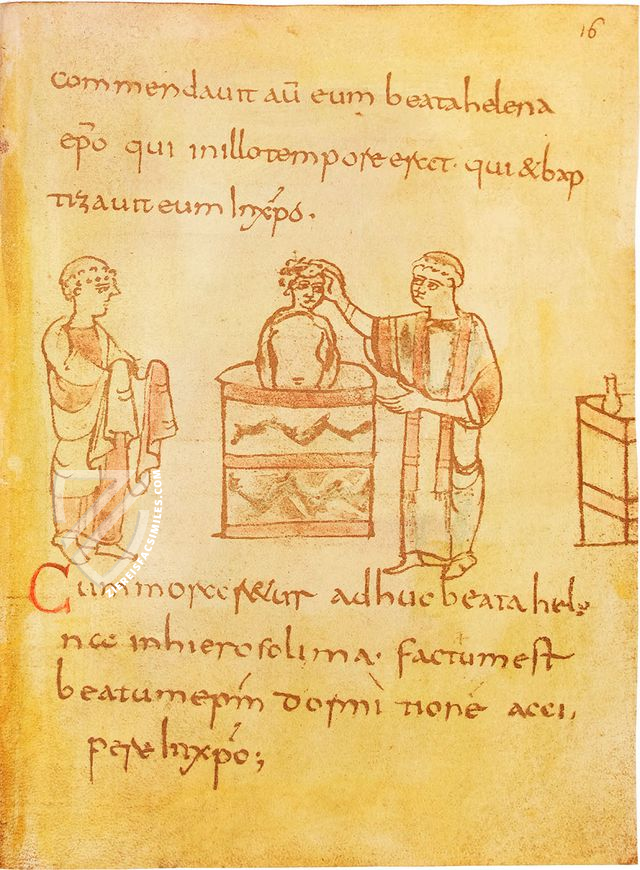 16
commendavit aū eum beata helena
ep̄o qui in illo tempore erat. qui & bap
tizavit eum in xp̄o.
Cum moraretur adhuc beata hele
na in hierosolima. factum est
beatum ep̄m dormitione acci
pere in xp̄o;
ZIEREISFACSIMILES.COM